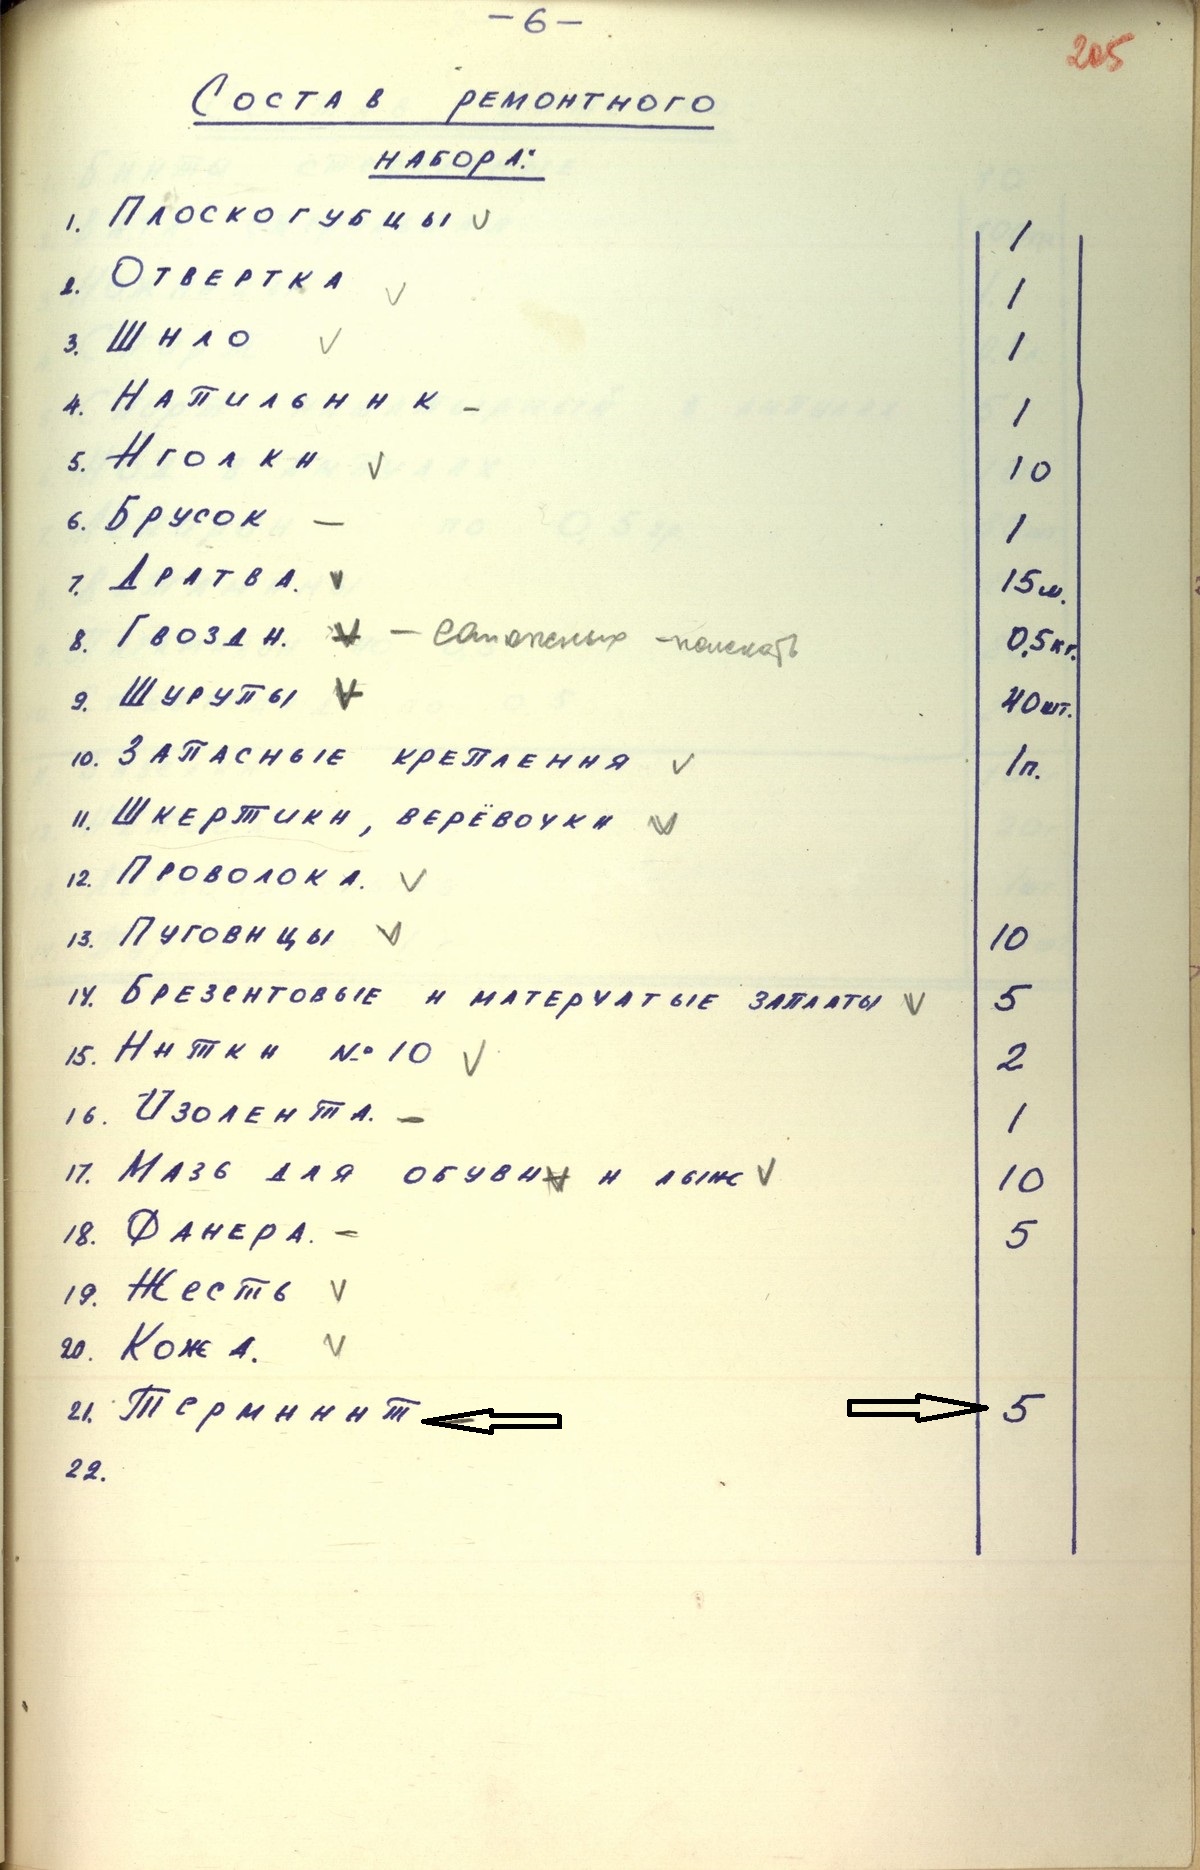 -6-
205
Состав ремонтного
набора:
1. Плоскогубцы 1
2. Отвертка 1
3. Шило 1
4. Напильник - 1
5. Иголки 10
6. Брусок - 1
7. Дратва. 15м.
8. Гвозди. - сапожных - поискать 0,5кг.
9. Шурупы 40шт.
10. Запасные крепления 1п.
11. Шкертики, верёвочки
12. Проволока.
13. Пуговицы 10
14. Брезентовые и матерчатые заплаты 5
15. Нитки №10 2
16. Изолента. - 1
17. Мазь для обуви и лыж 10
18. Фанера. - 5
19. Жесть
20. Кожа.
21. Терминит 5
22.